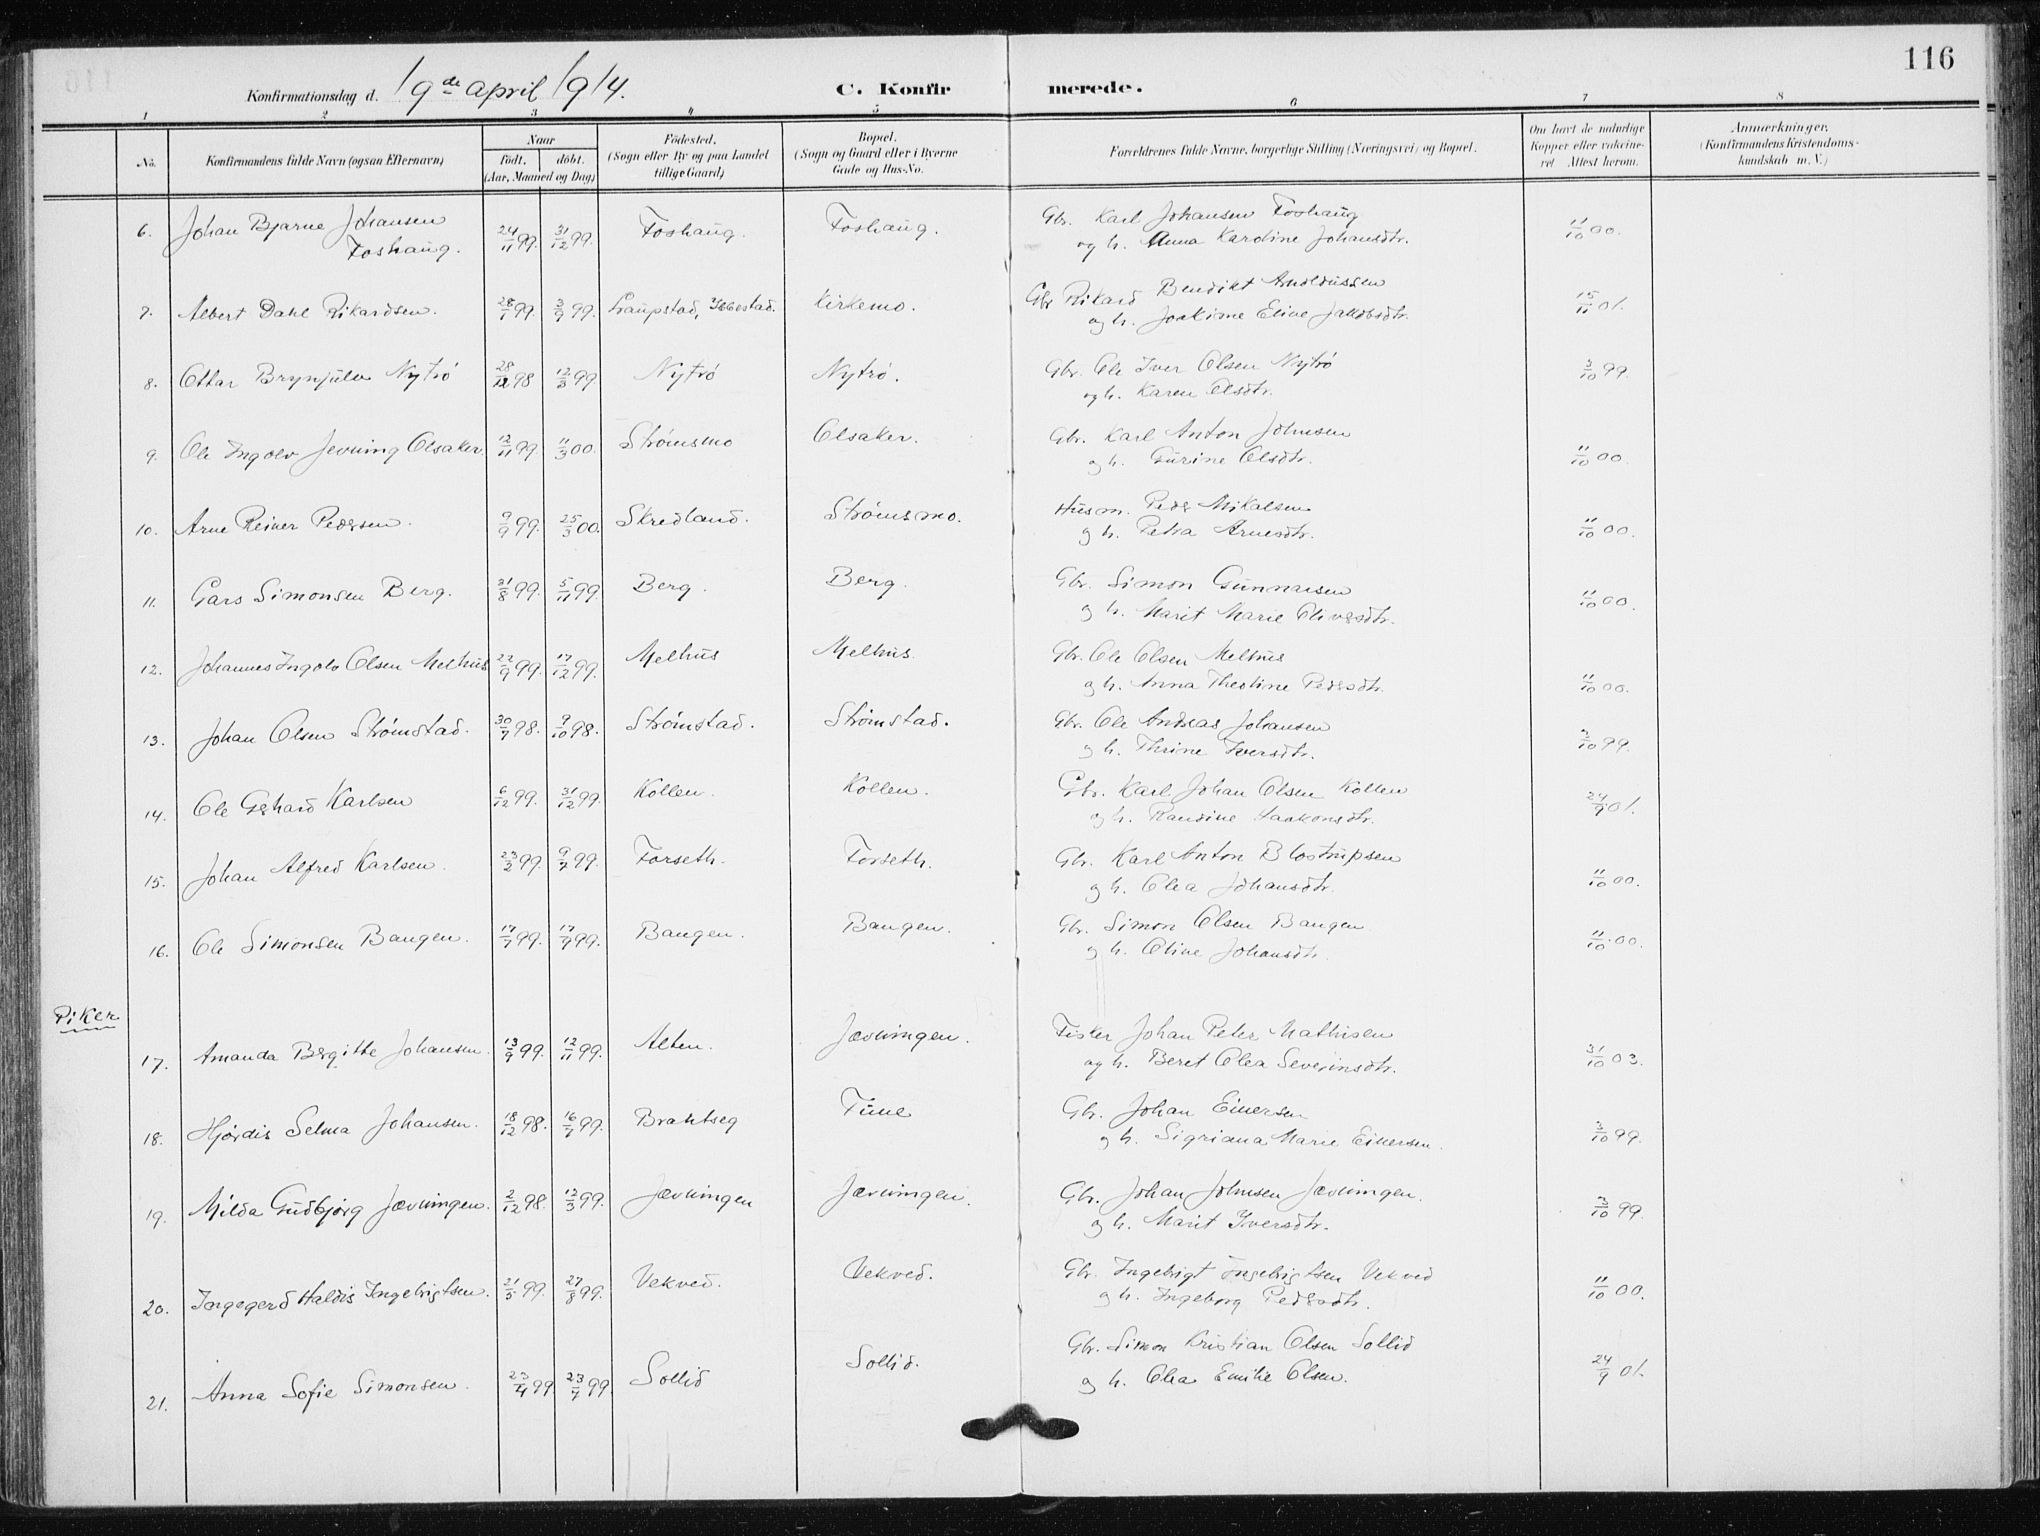 116
Konfirmationsdag d. 19de april 1914.
C. Konfirmerede.
1 2 3 4 5 6 7 8
No.
Konfirmandens fulde Navn (ogsaa Efternavn)
Naar
födt. döbt.
(Aar, Maaned og Dag)
Födested.
(Sogn eller By og paa Landet
tillige Gaard)
Bopæl.
(Sogn og Gaard eller i Byerne
Gade og Hus-No.
Forældrenes fulde Navne, borgerlige Stilling (Næringsvei) og Bopæl.
Om havt de naturlige
Kopper eller vakcine-
ret Attest herom.
Anmærkninger.
(Konfirmandens Kristendoms-
kundskab m. V.)
6. Johan Bjarne Johansen Foshaug. 24/11 99. 31/12 99. Foshaug. Foshaug. Gbr. Karl Johansen Foshaug
og h. Anna Karoline Johansdtr. 11/10 00.
7. Albert Dahl Rikardsen. 28/1 99. 3/9 99. Laupstad, Ibbestad. Kirkemo. Gbr Rikard Benedikt Arnoldussen
og h. Joakime Eline Jakobsdtr. 15/11 01.
8. Ottar Brynjulv Nytrö 28/12 98 12/3 99 Nytrö Nytrö. Gbr. Ole Iver Olsen Nytrö
og h. Karen Olsdtr. 3/10 99.
9. Ole Ingolv Jevning Olsaker. 12/11 99. 11/3 00. Strömsmo Olsaker. Gbr. Karl Anton Johnsen
og h. Gurine Olsdtr. 11/10 00.
10. Arne Reiner Pedersen. 9/9 99. 25/3 00. Skredland. Strömsmo. Husm. Peder Mikalsen
og h. Petra Arnesdtr. 11/10 00.
11. Gars Simonsen Berg. 31/8 99. 5/11 99. Berg. Berg. Gbr. Simon Gunnarsen
og h. Marit Marie Oliversdtr. 11/10 00.
12. Johannes Ingolv Olsen Melhus 22/9 99. 17/12 99. Melhus Melhus. Gbr. Ole Olsen Melhus
og h. Anna Theoline Pedersdtr. 11/10 00.
13. Johan Olsen Strömstad. 30/7 98. 9/10 98. Strömstad. Strömstad. Gbr. Ole Andreas Johansen
og h. Thrine Iversdtr. 3/10 99.
14. Ole Gerhard Karlsen 6/12 99. 31/12 99. Kollen. Kollen. Gbr. Karl Johan Olsen Kollen
og h. Randine Haakonsdtr. 24/9 01.
15. Johan Alfred Karlsen. 23/2 99. 9/7 99. Forseth. Forseth. Gbr. Karl Anton Blostrupsen
og h. Olea Johansdtr. 11/10 00.
16. Ole Simonsen Bangen. 17/7 99. 17/9 99. Bangen. Bangen. Gbr. Simon Olsen Bangen
og h. Oline Johansdtr. 11/10 00.
Piker
17. Amanda Bergitte Johansen. 13/9 99. 12/11 99. Alten. Jævningen. Fisker Johan Peter Mathisen
og h. Beret Olea Severinsdtr. 31/10 03.
18. Hjördis Selma Johansen. 18/12 98. 16/7 99. Brattseg Tune Gbr. Johan Einersen
og h. Sigriana Marie Einersen. 3/10 99.
19. Milda Gudbjörg Jævningen. 2/12 98. 12/3 99. Jævningen Jævningen. Gbr. Johan Johnsen Jævningen.
og h. Marit Iversdtr. 3/10 99.
20. Ingegerd Haldis Ingebrigtsen. 21/5 99. 27/8 99. Vekved. Vekved. Gbr. Ingebrigt Ingebrigtsen Vekved
og h. Ingeborg Pedersdtr. 11/10 00.
21. Anna Sofie Simonsen. 23/4 99. 23/7 99. Sollid Sollid. Gbr. Simon Kristian Olsen Sollid
og h. Olea Emilie Olsen. 24/9 01.